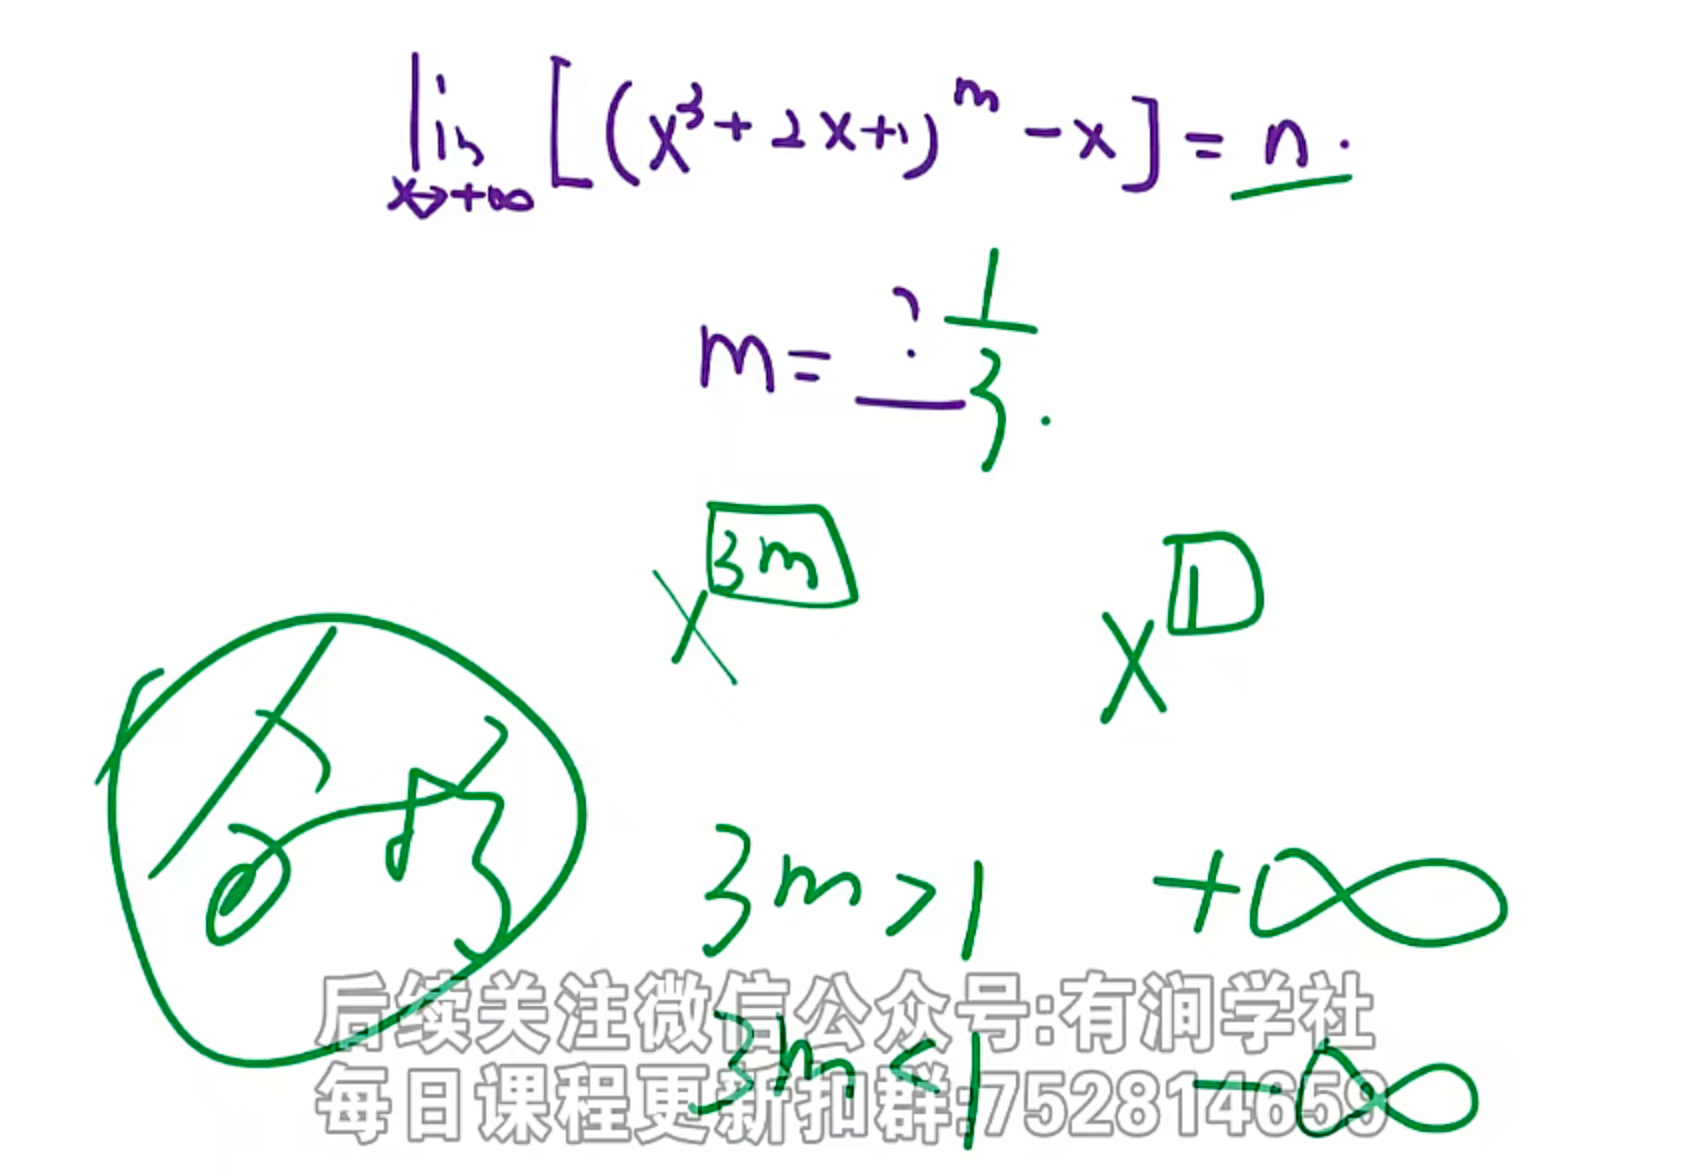 lim [(x³+2x+1)^m -x] = n.
x→+∞
m= ? 1/3.
x^3m x^1
3m>1 +∞
后续关注微信公众号:有润学社
3m<1 -∞
每日课程更新扣群:752814659